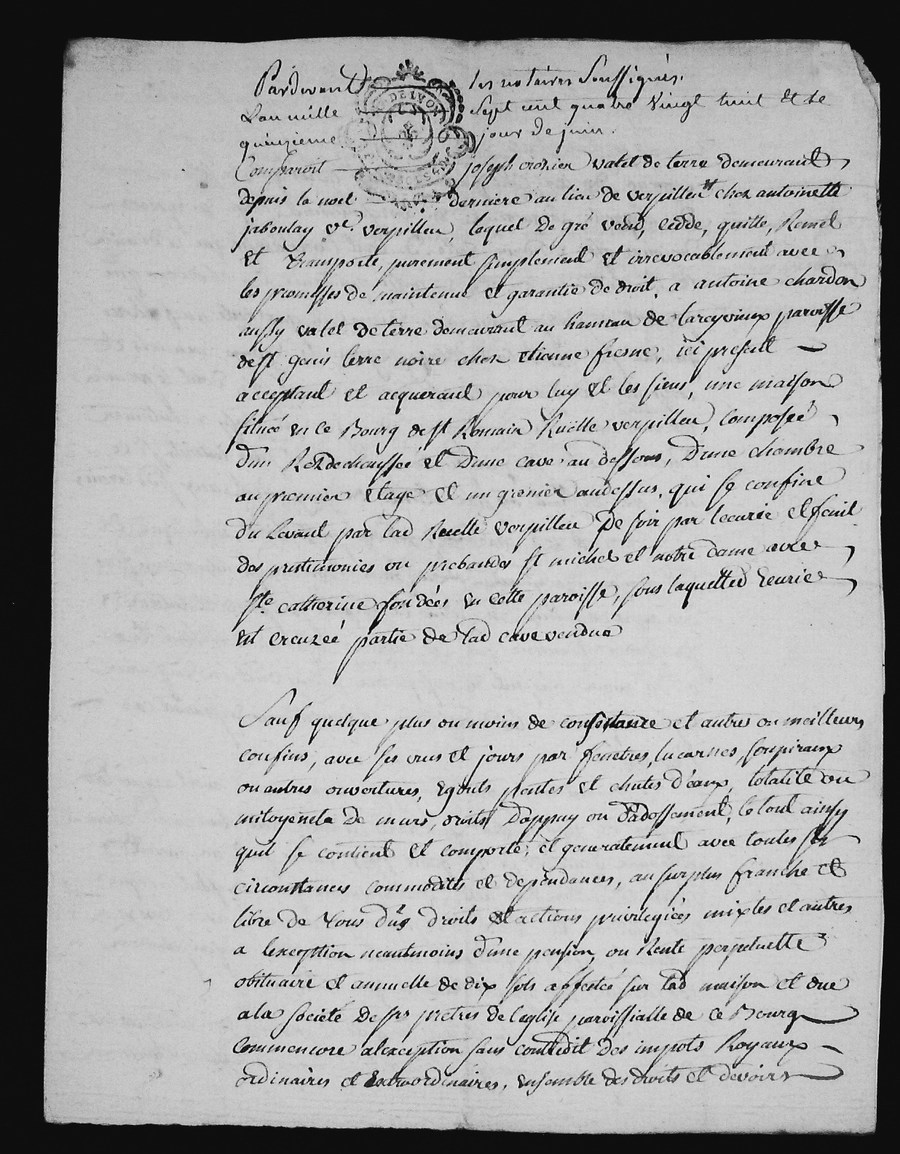 Pardevant les notaires soussignés.
L'an mille sept cent quatre vingt huit et le
quinzieme jour de juin.
Comparoit joseph crozier valet de terre demeurant
depuis la noel derniere au lieu de verpilleu chez antoinette
jaboulay ve. verpilleu, lequel de gré vend, cedde, quitte, Remet
et transporte, purement simplement et irrevocablement avec
les promesses de maintenue et garantie de droit, a antoine chardon
aussy valet de terre demeurant au hameau de larcyvieux paroisse
de st genis terre noire chez etienne fresne, ici present
acceptant et acquerant pour luy et les siens, une maison
située en ce Bourg de st Romain Ruelle verpilleu, Composée
d'un Rez de chaussée et d'une cave au dessous, d'une chambre
au premier etage et un grenier au dessus, qui se confine
du Levant par lad Ruelle verpilleu De soir par lecurie et fenil
des prestimonies ou prebandes st michel et notre dame avec
ste catherine fondées en cette paroisse, sous laquelle d ecurie
est creuzeé partie de lad cave vendue
Sauf quelque plus ou moins de consistance et autres ou meilleurs
confins, avec ses vues et jours par fenetres, lucarnes, soupiraux
ou autres ouvertures, Egouts pentes et chutes d'eaux, totalité ou
mitoyeneté de murs, droits Dappuy ou D'adossement, le tout ainsy
quil se contient et comporte; et generalement avec toutes ses
circonstances commodités et dependances, au surplus franche et
libre de tous dus droits et actions privilegiées mixtes et autres
a lexception neantmoins d'une pension, ou Rente perpetuelle
obituaire et annuelle de dix sols affectée sur lad maison et due
a la societé de srs pretres de leglise paroissialle de ce Bourg
Comme encore alexception sans contredit des impots Royaux
ordinaires et Extraordinaires, ensemble des droits et devoirs